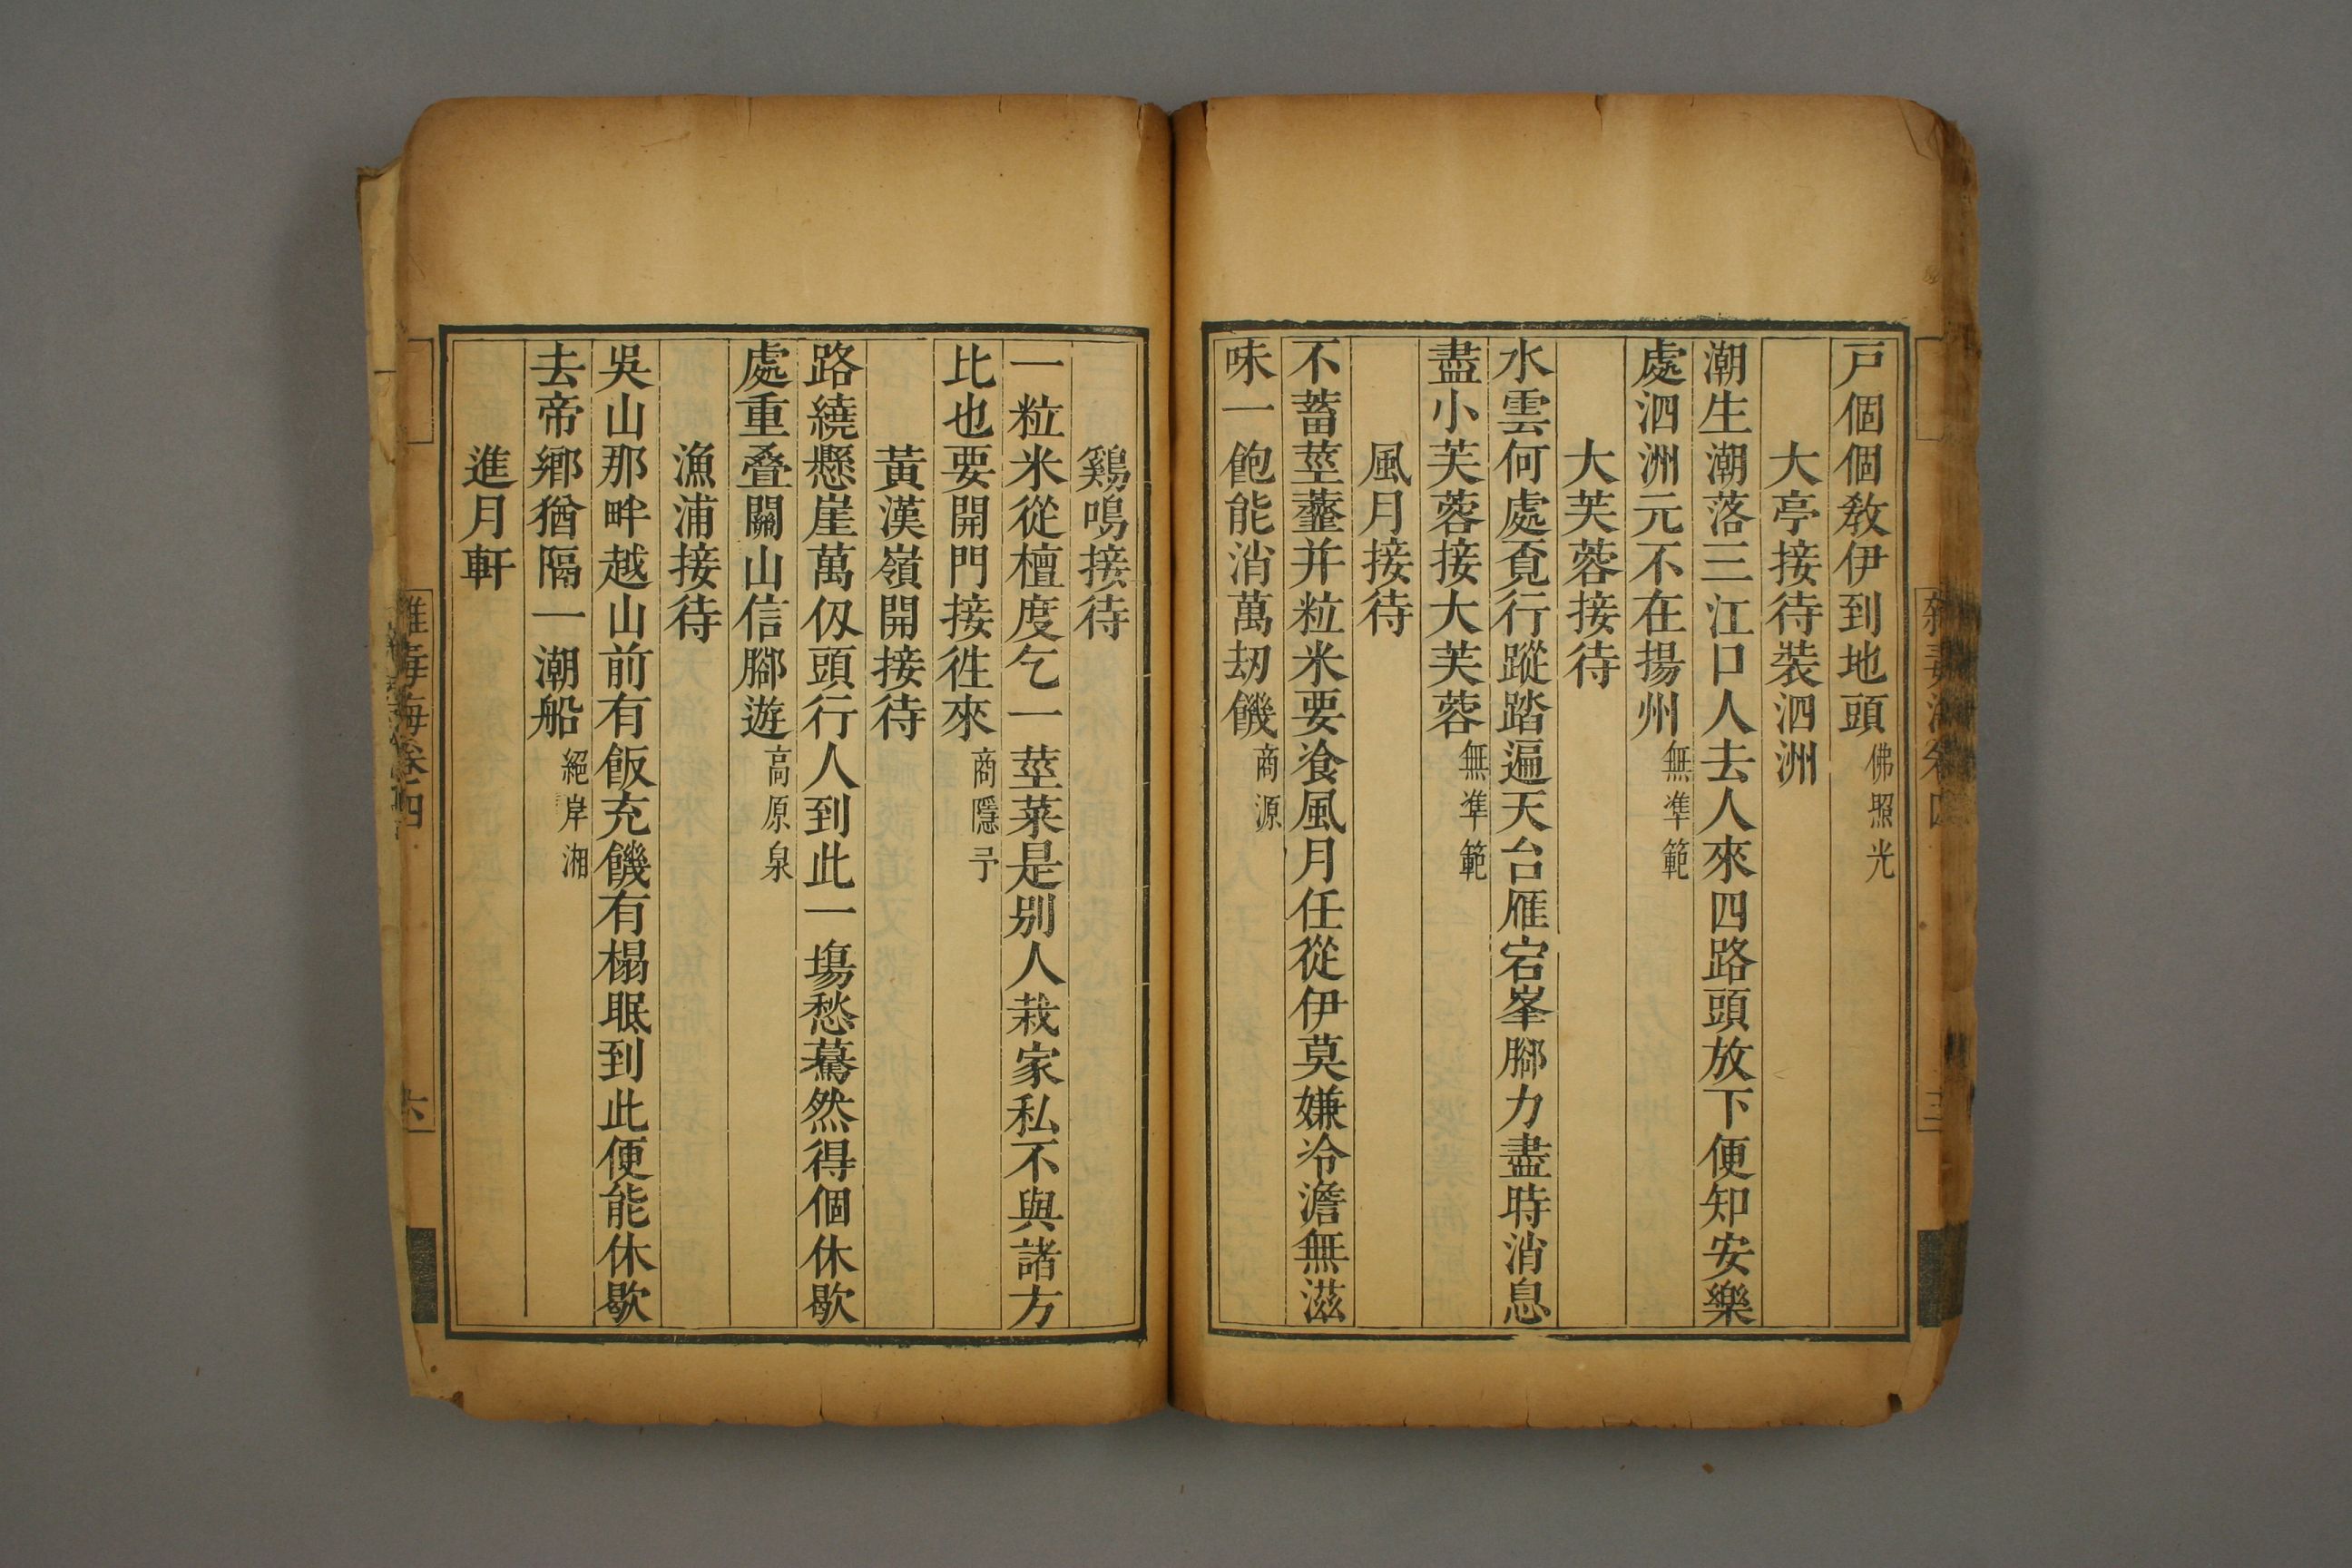 戸個個敎伊到地頭佛照光
大亭接待裝泗洲
潮生潮落三江口人去人來四路頭放下便知安樂
處泗洲元不在揚州無準範
大芙蓉接待
水雲何處覔行蹤踏遍天台雁宕峯脚力盡時消息
盡小芙蓉接大芙蓉無準範
風月接待
不蓄莖虀并粒米要飡風月任從伊莫嫌冷澹無滋
味一飽能消萬劫饑商源
鷄鳴接待
一粒米從檀度乞一莖菜是別人栽家私不與諸方
比也要開門接徃來商隱予
黃漢嶺開接待
路繞懸崖萬仭頭行人到此一塲愁驀然得個休歇
處重叠關山信脚遊高原泉
漁浦接待
吳山那畔越山前有飯充饑有榻眠到此便能休歇
去帝鄉猶隔一潮船絕岸湘
進月軒